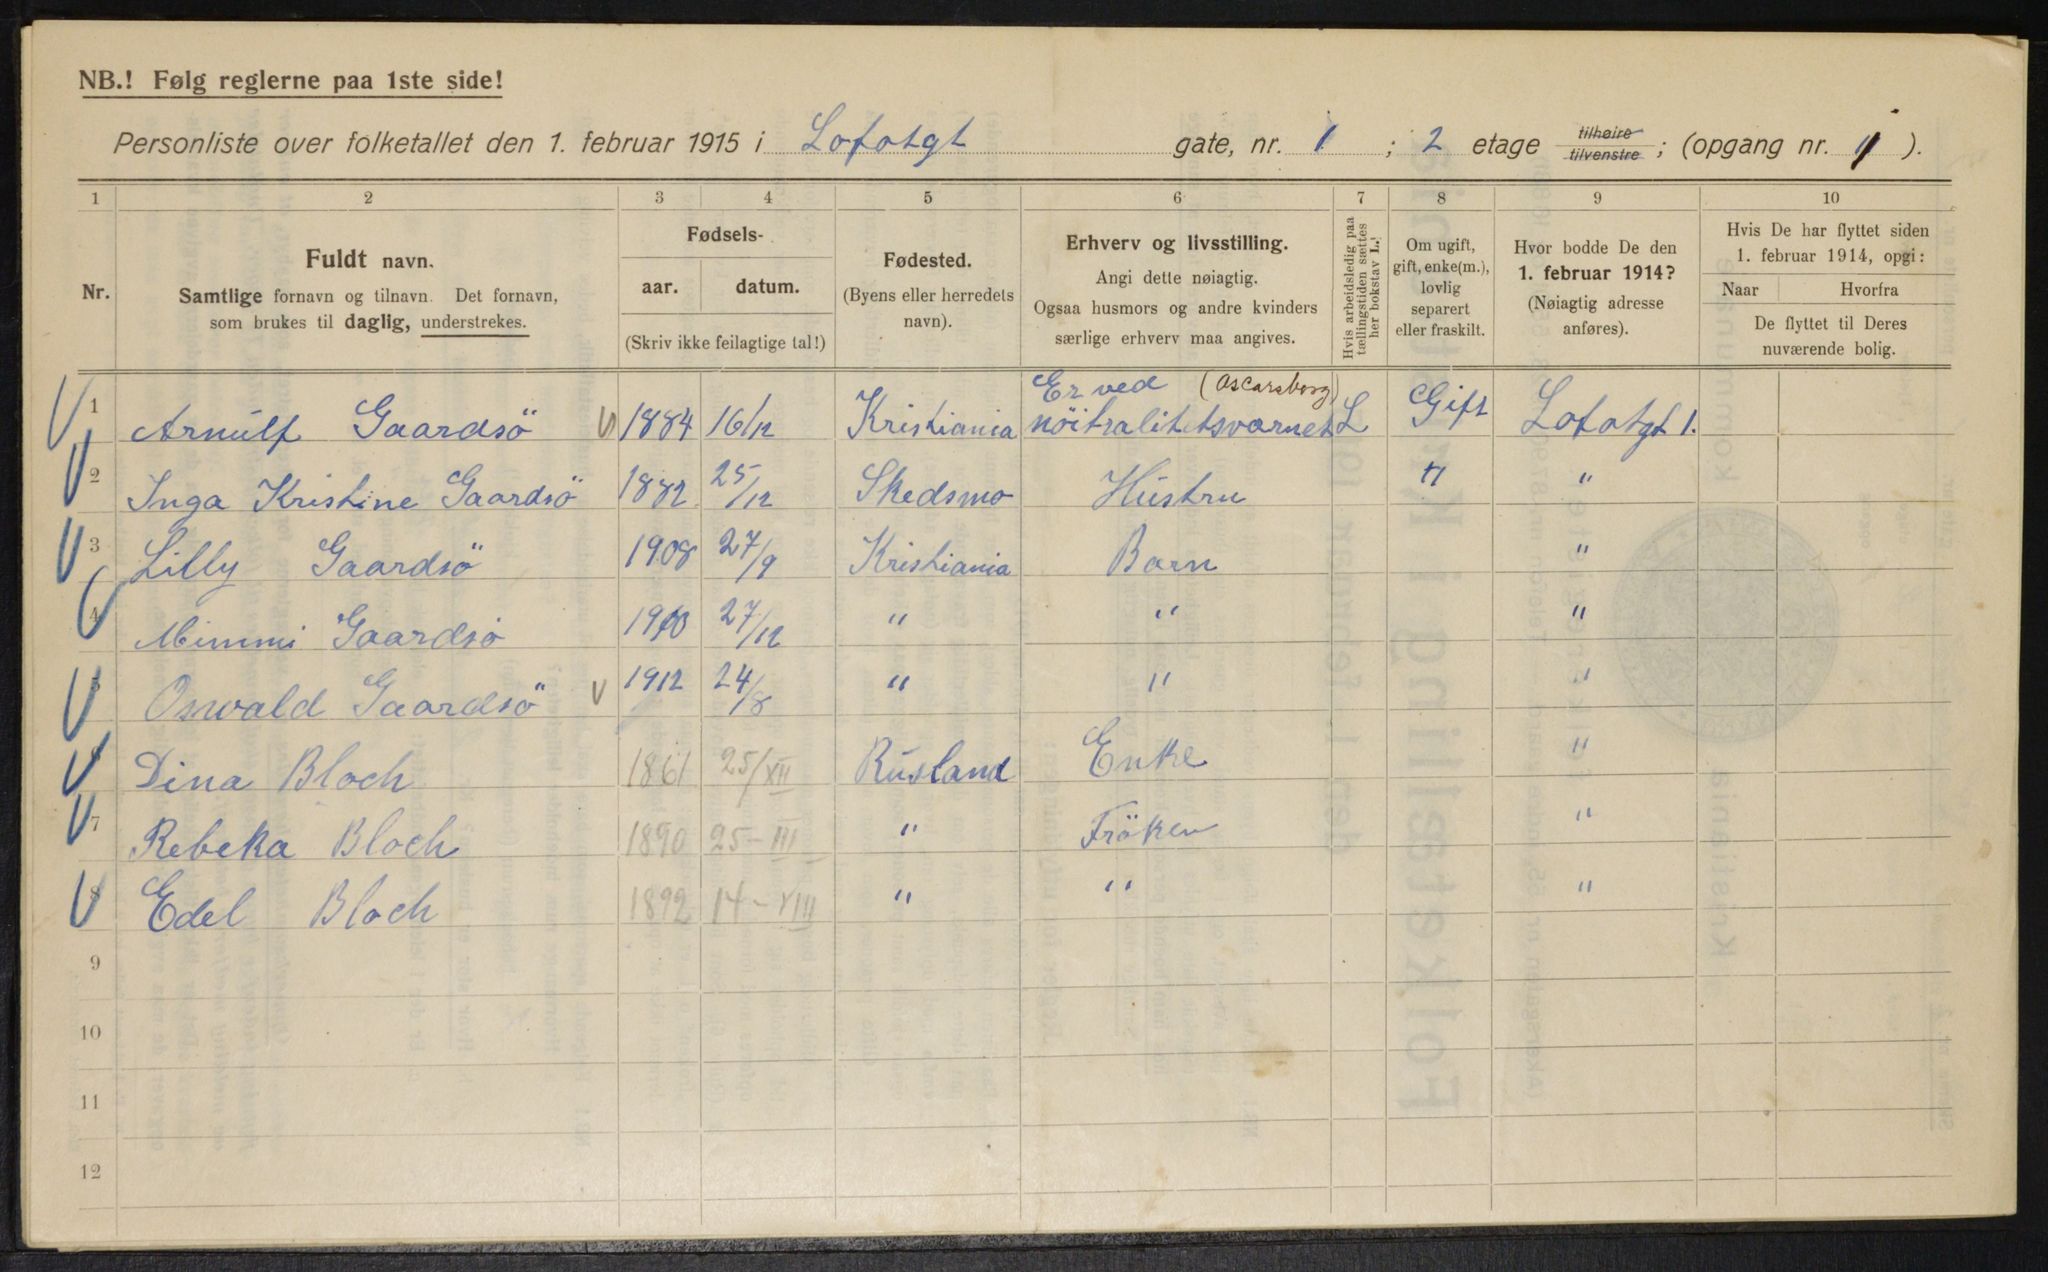 NB.! Følg reglerne paa 1ste side!
Personliste over folketallet den 1. februar 1915 i Lofotgt gate, nr. 1 ; 2 etage tilhøire tilvenstre ; (opgang nr. 1 ).
1 2 3 4 5 6 7 8 9 10
Nr.
Fuldt navn.
Samtlige fornavn og tilnavn. Det fornavn,
som brukes til daglig, understrekes.
Fødsels-
aar. datum.
(Skriv ikke feilagtige tal!)
Fødested.
(Byens eller herredets
navn).
Erhverv og livsstilling.
Angi dette nøiagtig.
Ogsaa husmors og andre kvinders
særlige erhverv maa angives.
Hvis arbeidsledig paa
tællingstiden sættes
her bokstav L.!
Om ugift,
gift, enke(m.),
lovlig
separert
eller fraskilt.
Hvor bodde De den
1. februar 1914?
(Nøiagtig adresse
anføres).
Hvis De har flyttet siden
1. februar 1914, opgi:
Naar Hvorfra
De flyttet til Deres
nuværende bolig.
1 Arnulf Gaardsö 1884 16/12 Kristiania Er ved (Oscarsborg) nöitralitetsvarnet L Gift Lofotgt 1.
2 Inga Kristine Gaardsö 1882 25/12 Skedsmo Hustru " "
3 Lilly Gaardsö 1908 27/9 Kristiania Barn "
4 Mimmi Gaardsö 1910 27/12 " " "
5 Oswald Gaardsö 1912 24/8 " " "
6 Dina Bloch 1861 25/XII Rusland Enke "
7 Rebeka Bloch 1890 25-III " Fröken "
8 Edel Bloch 1892 14-VIII " " "
9
10
11
12